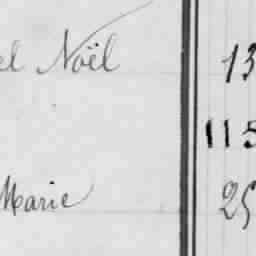 el Noël 13
115
Marie 25